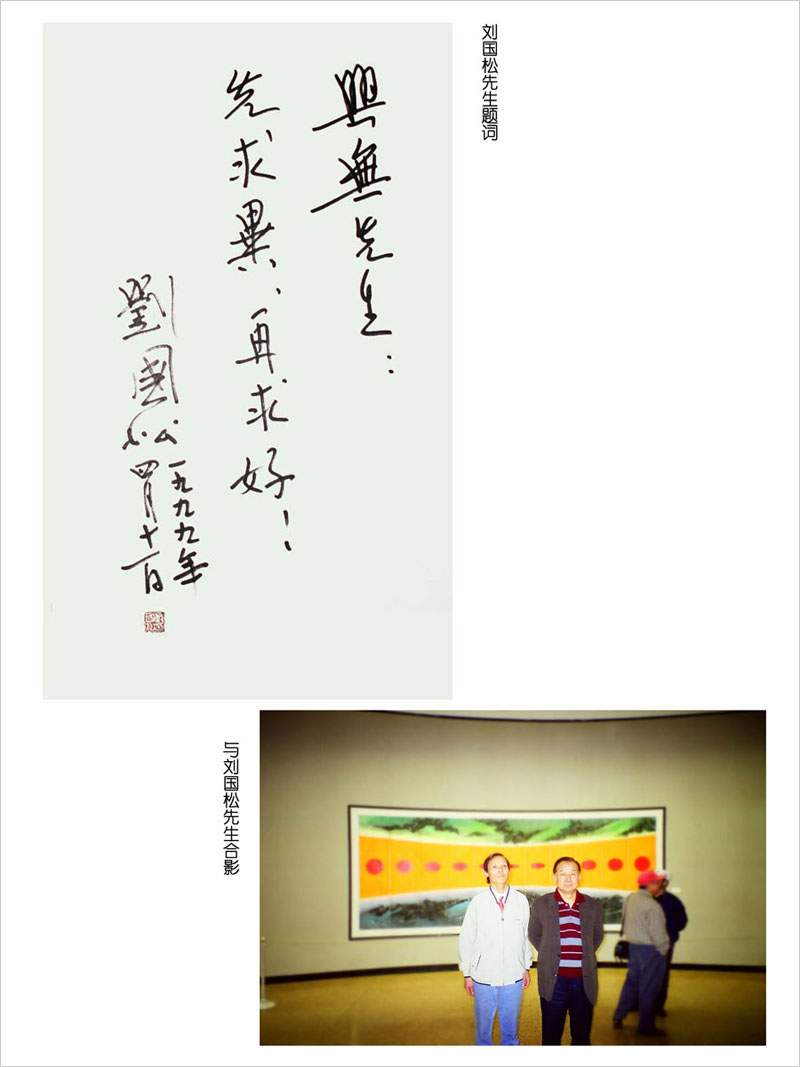 刘国松先生题词
興無先生：
先求異，再求好！
劉國松
一九九九年
四月十一日
与刘国松先生合影